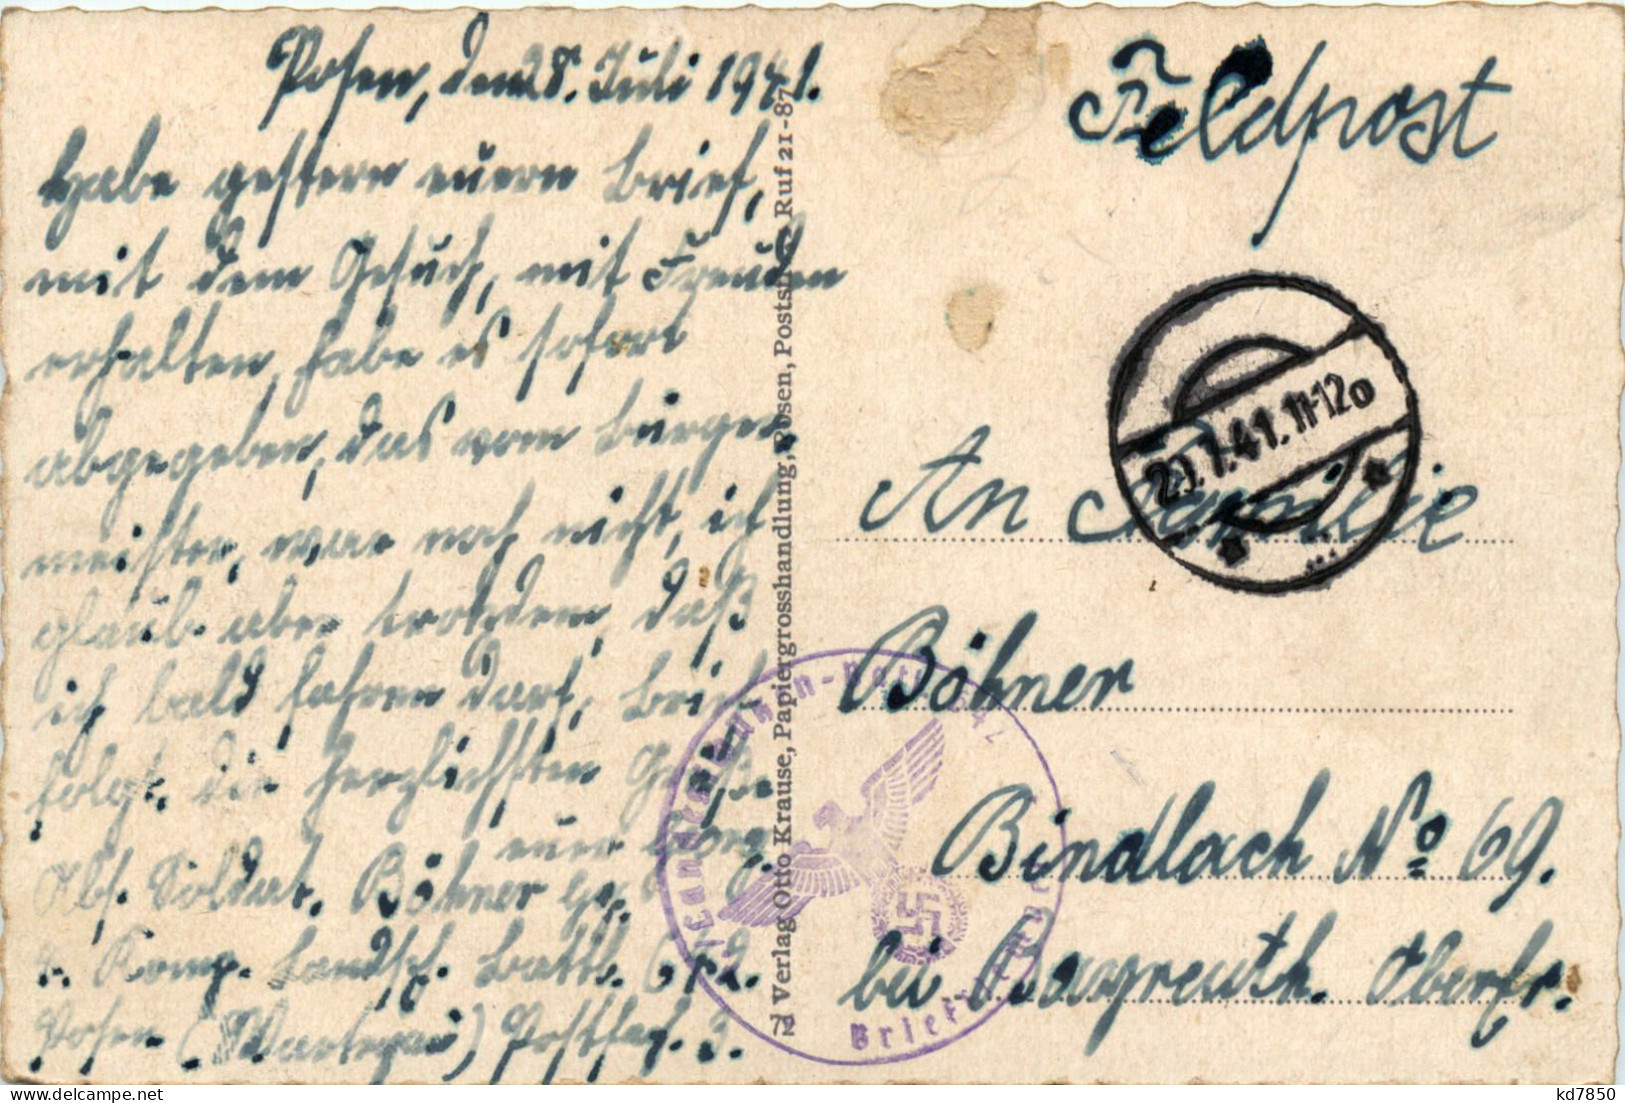 Posen, den 28. Juli 1941.
Habe gestern euern Brief,
mit dem Gesuch, mit Freuden
erhalten, habe es sofort
abgegeben, das vom Bürger-
meister, war noch nicht, ich
glaub aber trotzdem, daß
ich bald fahren darf, Brief
folgt. die herzlichsten Grüße
euer Georg
Abs. Soldat. Böhner Gg.
4. Komp. Landesch. Batl. 672.
Posen (Wartegau) Postfach. 3.
72 Verlag Otto Krause, Papiergrosshandlung, Posen, Ruf 21-87
Feldpost
29.7.41.11-12
An Familie
Böhner
Bindlach No 69.
bei Bayreuth. Oberfr.